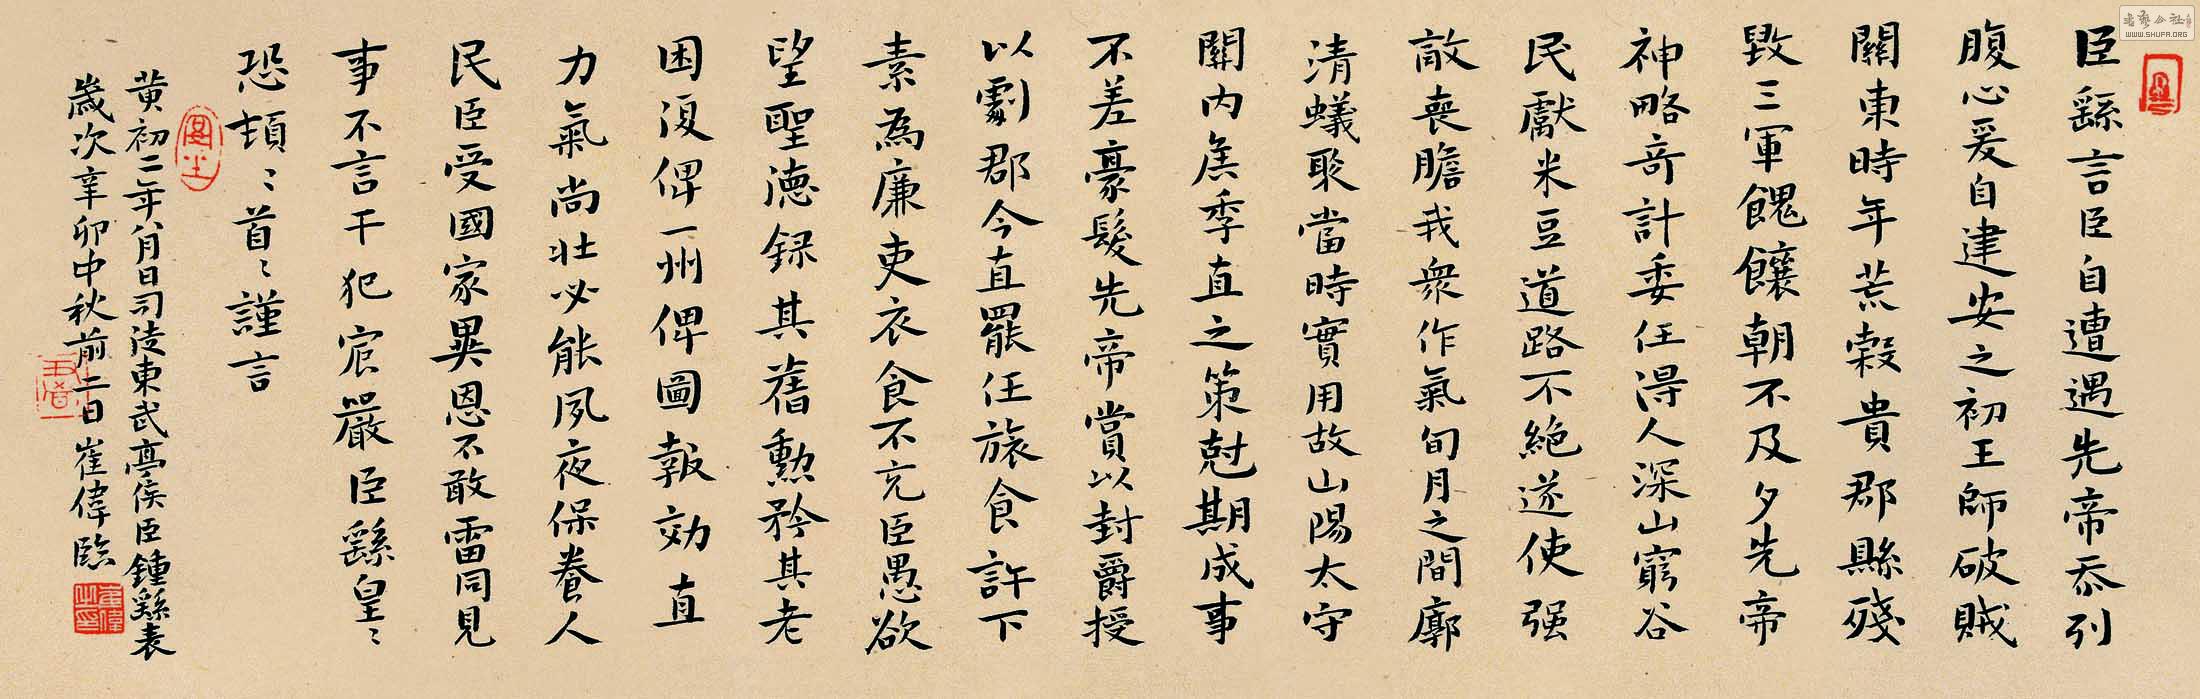 臣繇言臣自遭遇先帝忝列
腹心爰自建安之初王師破賊
關東時年荒穀貴郡縣殘
毀三軍餽饟朝不及夕先帝
神略奇計委任得人深山窮谷
民獻米豆道路不絕遂使强
敵喪膽我衆作氣旬月之間廓
清蟻聚當時實用故山陽太守
關内焦季直之策尅期成事
不差豪髮先帝賞以封爵授
以劇郡今直罷任旅食許下
素為廉吏衣食不充臣愚欲
望聖德錄其舊勳矜其老
困復俾一州俾圖報効直
力氣尚壯必能夙夜保養人
民臣受國家異恩不敢雷同見
事不言干犯宸嚴臣繇皇〻
恐頓〻首〻謹言
黄初二年八月日司徒東武亭侯臣鍾繇表
歲次辛卯中秋前二日崔偉臨
書藝公社
WWW.SHUFA.ORG